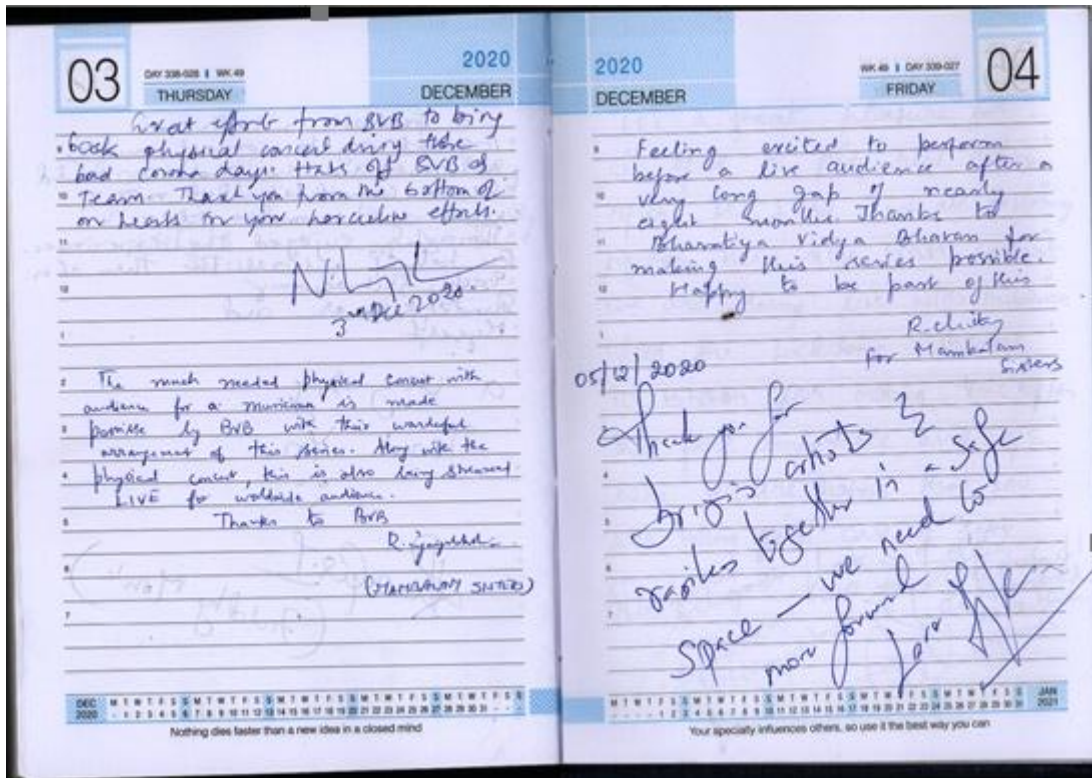 03
DAY 338-028 | WK 49
THURSDAY
2020
DECEMBER
Great efforts from BVB to bring
back physical concert during these
bad corona days. Hats off BVB &
Team. Thank you from the bottom of
our hearts for your herculine efforts.
3rd Dec 2020
The much needed physical concert with
audience for a musician is made
possible by BVB with their wonderful
arrangement of this series. Along with the
physical concert, this is also being streamed
LIVE for worldwide audience.
Thanks to BVB
(MAMBALAM SISTERS)
DEC 2020
M T W T F S S M T W T F S S M T W T F S S M T W T F S S M T W T F S S
- 1 2 3 4 5 6 7 8 9 10 11 12 13 14 15 16 17 18 19 20 21 22 23 24 25 26 27 28 29 30 31 - - -
Nothing dies faster than a new idea in a closed mind
2020
DECEMBER
WK 49 | DAY 339-027
FRIDAY
04
Feeling excited to perform
before a live audience after a
very long gap of nearly
eight months Thanks to
Bharatiya Vidya Bhavan for
making this series possible.
Happy to be part of this
R. Chitra
for Mambalam
Sisters
05/12/2020
Thank you for
bringing artists &
rasikas together in a safe
space — we need to
move forward
JAN 2021
Your specialty influences others, so use it the best way you can